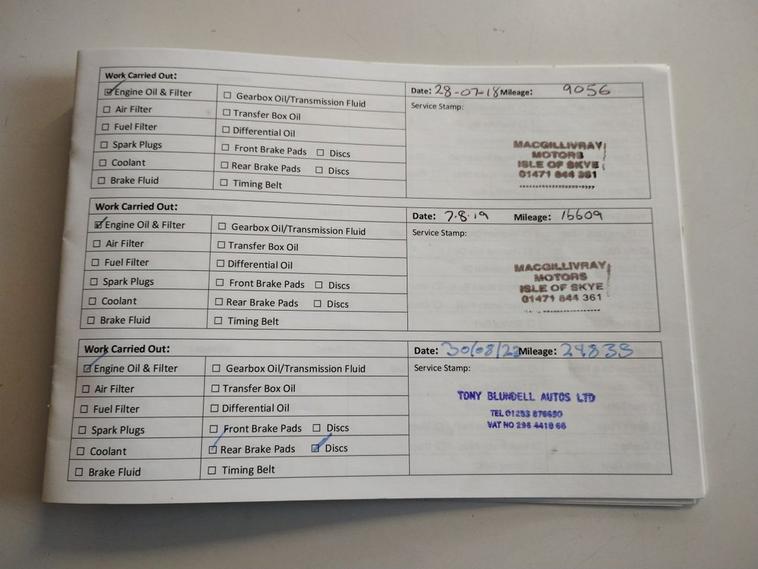 Work Carried Out:
Engine Oil & Filter
Air Filter
Fuel Filter
Spark Plugs
Coolant
Brake Fluid
Gearbox Oil/Transmission Fluid
Transfer Box Oil
Differential Oil
Front Brake Pads Discs
Rear Brake Pads Discs
Timing Belt
Date: 28-07-18 Mileage: 9056
Service Stamp:
MACGILLIVRAY
MOTORS
ISLE OF SKYE
01471 844 361
Work Carried Out:
Engine Oil & Filter
Air Filter
Fuel Filter
Spark Plugs
Coolant
Brake Fluid
Gearbox Oil/Transmission Fluid
Transfer Box Oil
Differential Oil
Front Brake Pads Discs
Rear Brake Pads Discs
Timing Belt
Date: 7.8.19 Mileage: 16609
Service Stamp:
MACGILLIVRAY
MOTORS
ISLE OF SKYE
01471 844 361
Work Carried Out:
Engine Oil & Filter
Air Filter
Fuel Filter
Spark Plugs
Coolant
Brake Fluid
Gearbox Oil/Transmission Fluid
Transfer Box Oil
Differential Oil
Front Brake Pads Discs
Rear Brake Pads Discs
Timing Belt
Date: Mileage:
Service Stamp:
TONY BLUNDELL AUTOS LTD
TEL 01253 876650
VAT NO 296 4418 66